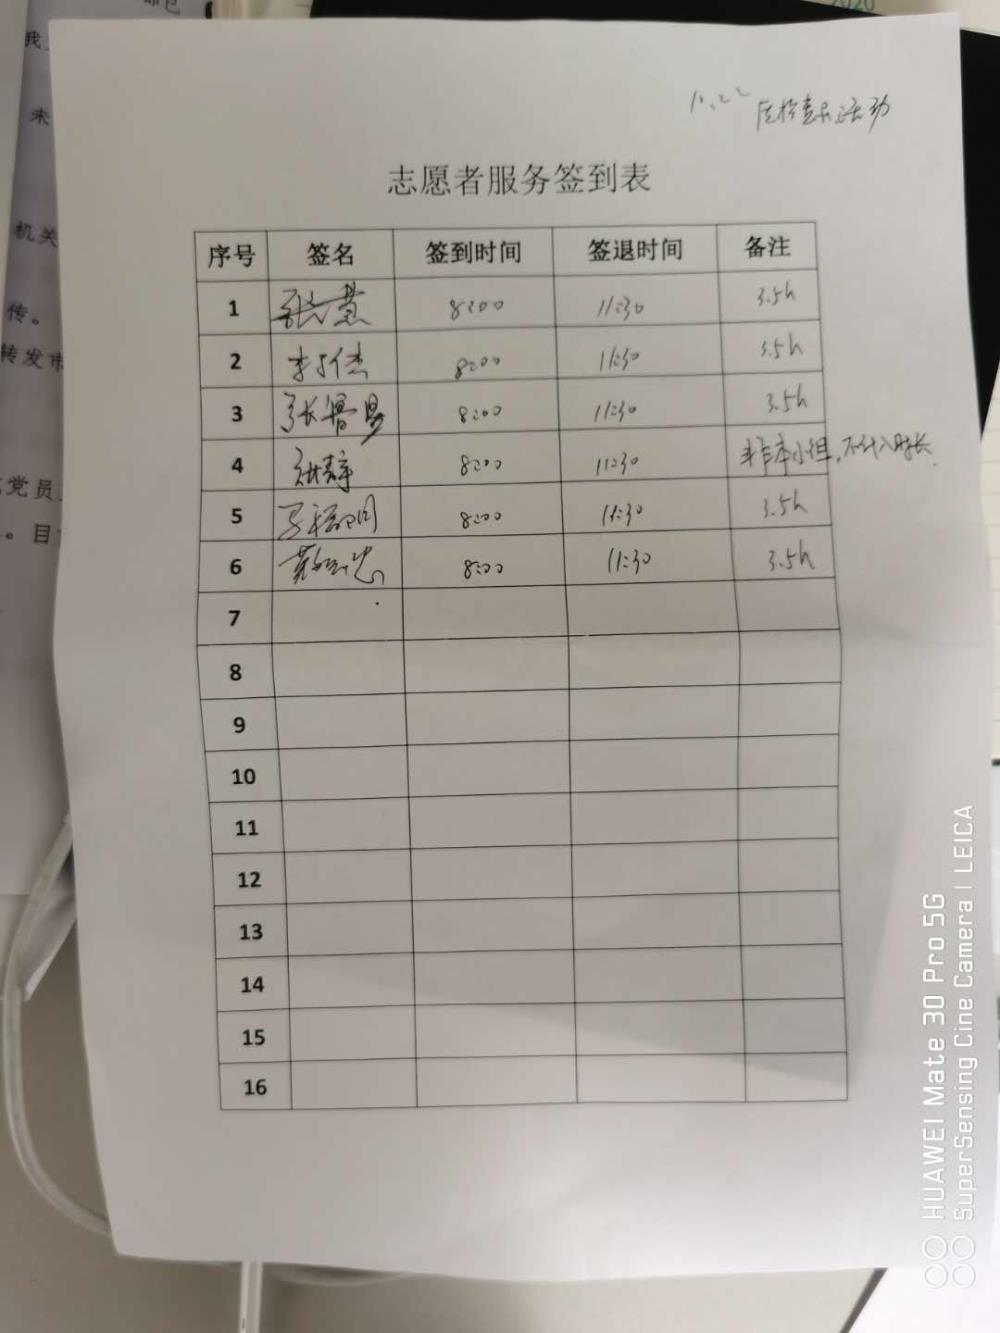 2020
我
未
机关
传。
转发市
党员
。目前
活动
志愿者服务签到表
序号 签名 签到时间 签退时间 备注
1 张慧 8:00 11:30 3.5h
2 8:00 11:30 3.5h
3 张 8:00 11:30 3.5h
4 张静 8:00 11:30 非本小组,不计入时长
5 8:00 11:30 3.5h
6 8:00 11:30 3.5h
7
8
9
10
11
12
13
14
15
16
HUAWEI Mate 30 Pro 5G
SuperSensing Cine Camera | LEICA